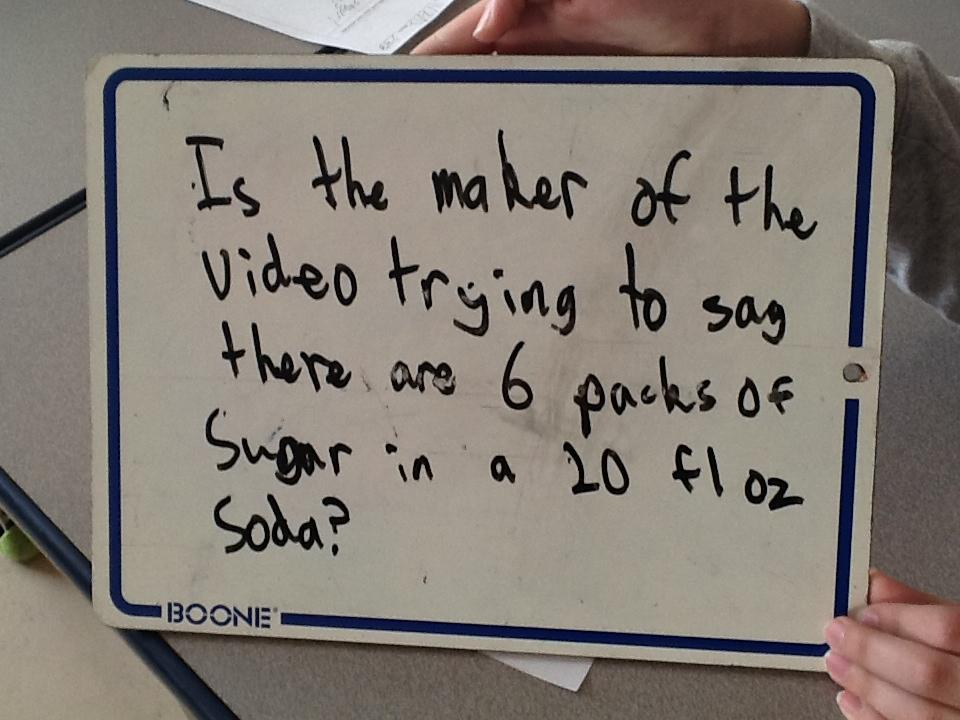 Is the maker of the
video trying to say
there are 6 packs of
Sugar in a 20 fl oz
Soda?
BOONE